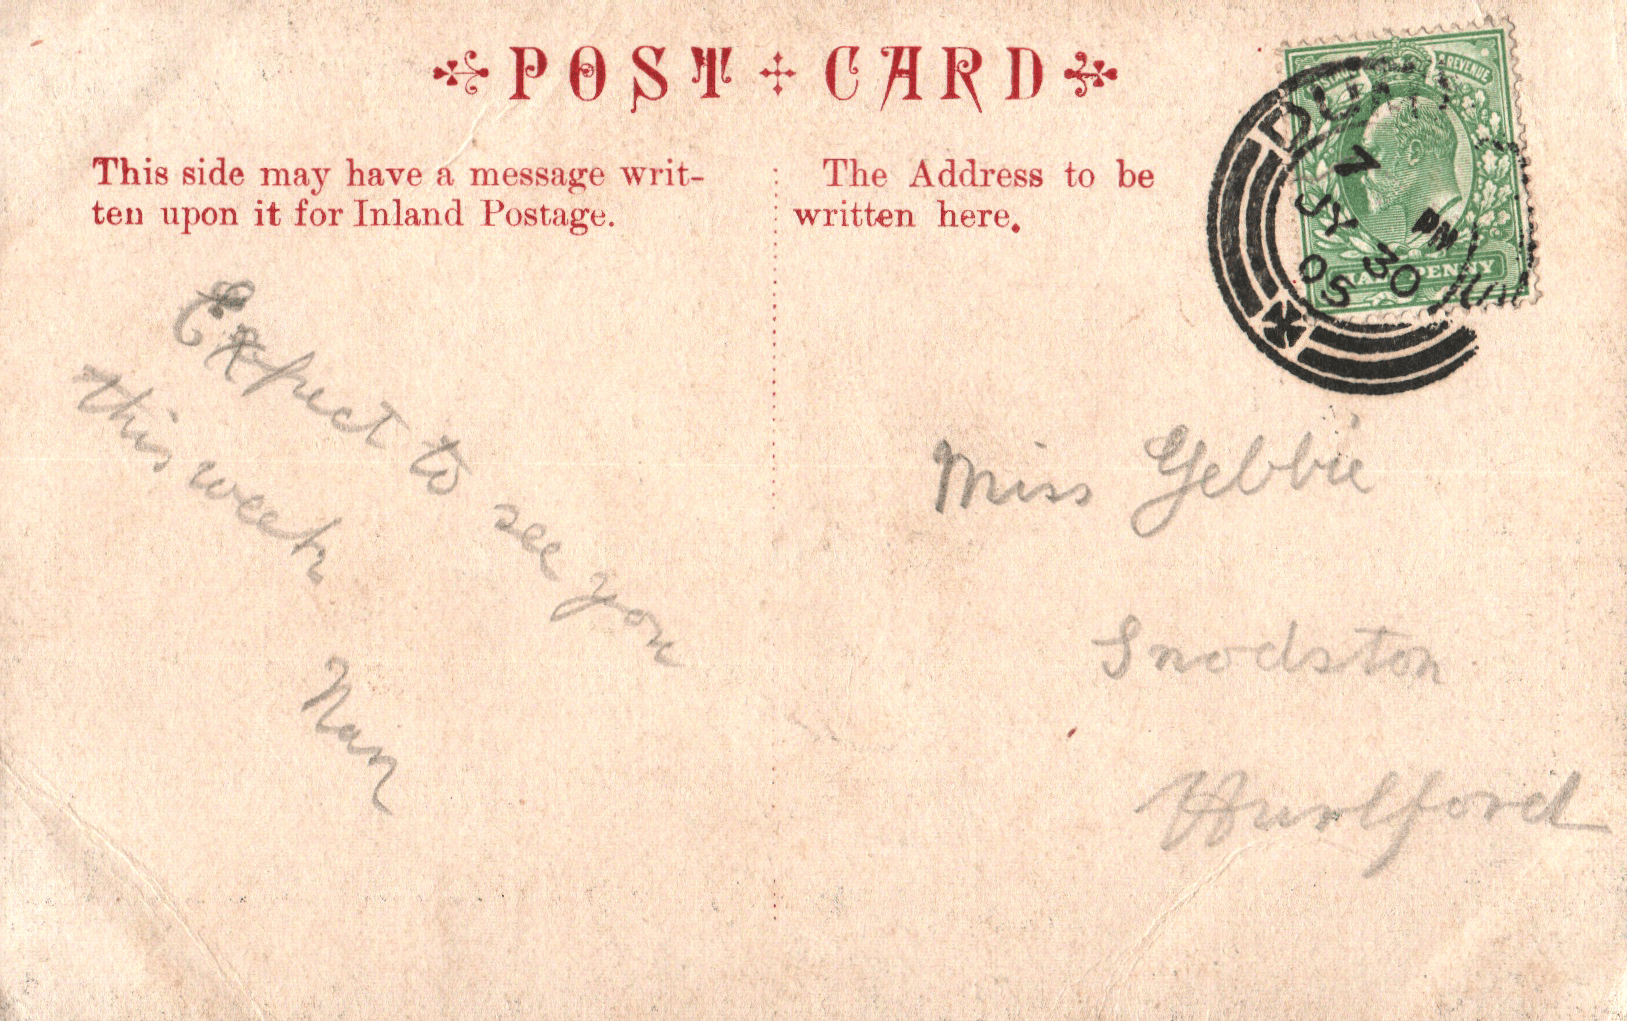 POST CARD
This side may have a message writ-
ten upon it for Inland Postage.
The Address to be
written here.
REVENUE
PENNY
7 PM
JY 30
05
Expect to see you
this week
Nan
Miss Gebbie
Snodston
Hurlford